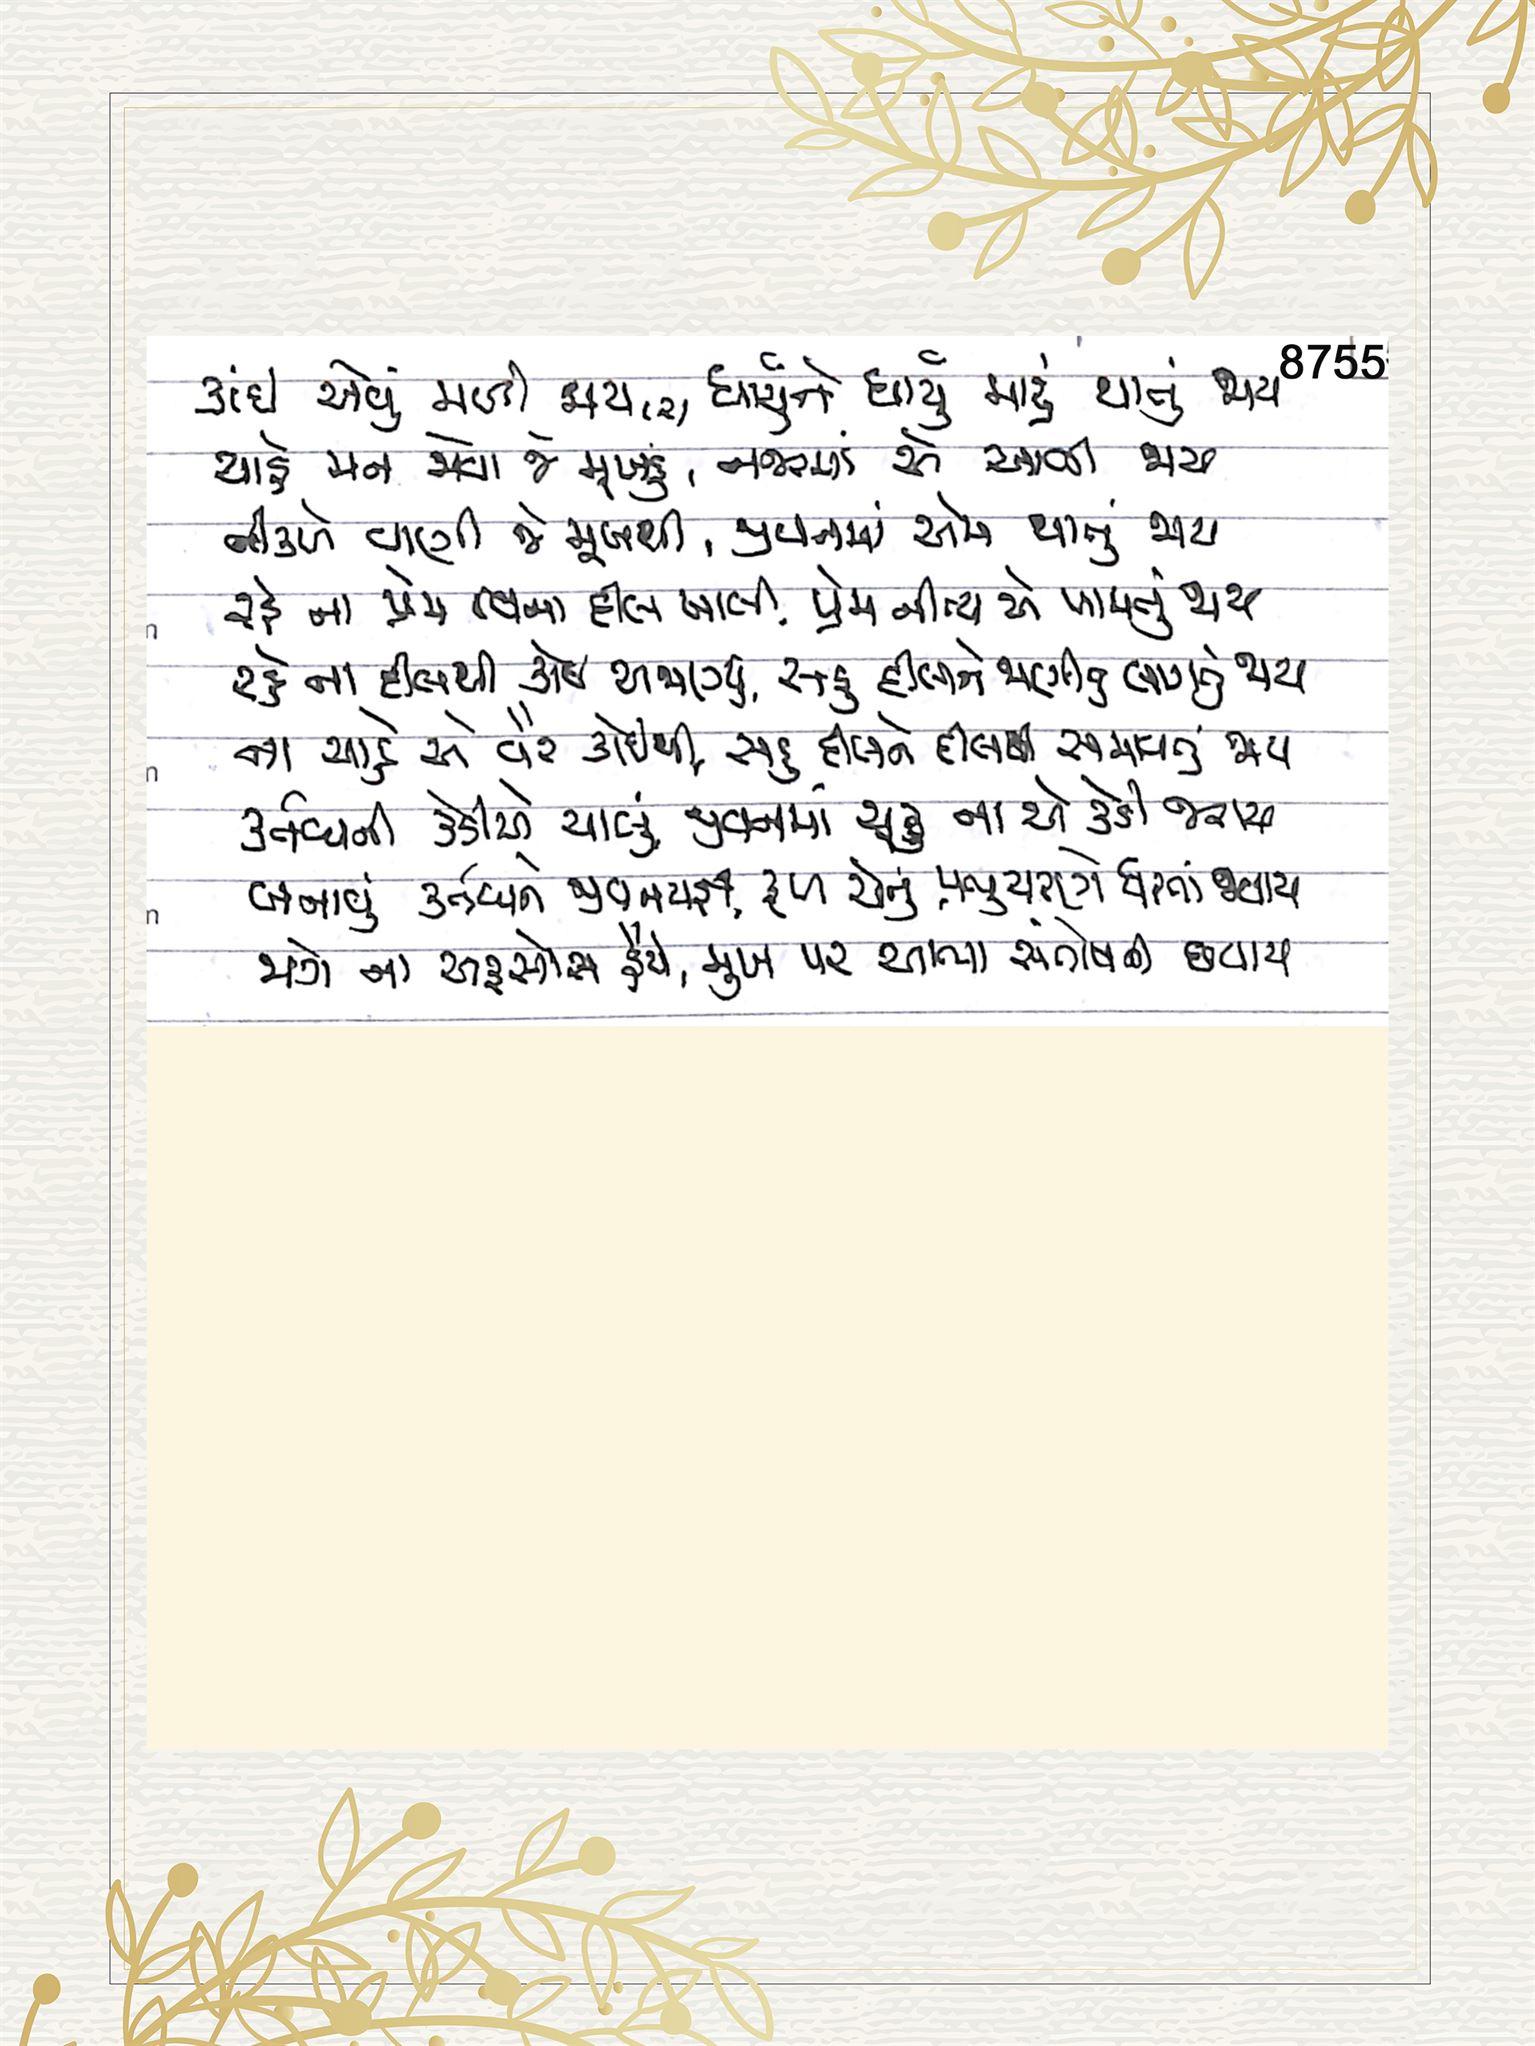 8755
કાંઈ એવું મળી જાય (૨) ધાર્યુંને ધાર્યું મારું થાતું જાય
ચાહે મન જોવા જે મૂજકું, નજરમાં એ આવી જાય
નીકળે વાણી જે મૂજથી, જીવનમાં એમ થાતું જાય
રહે ના પ્રેમ વિના દીલ ખાલી, પ્રેમ નીત્ય એ પામતું જાય
રહે ના દીલથી કોઈ અજાણ્યું, સહુ દીલને જાણીતું લાગતું જાય
ના ચાહે એ વૈર કોઈથી, સહુ દીલને દીલથી સમાવતું જાય
કર્તવ્યની કેડીએ ચાલું, જીવનમાં ચૂકું ના એ કેડી જરાય
બનાવું કર્તવ્યને જીવનયજ્ઞ, ફળ એનું પ્રભુચરણે ધરતાં જવાય
જાગે ના અફસોસ હૈયે, મુખ પર આભા સંતોષની છવાય